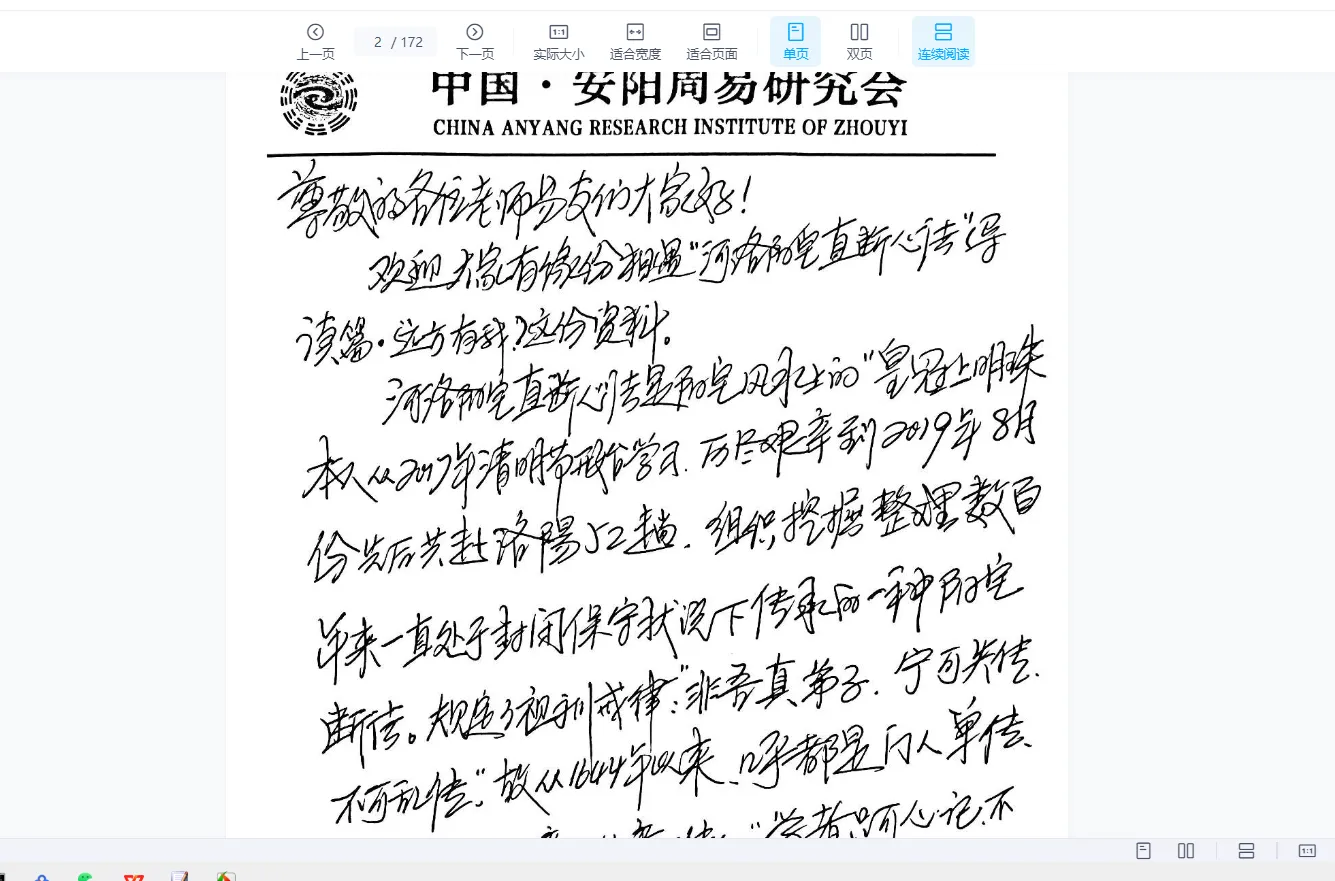 上一页
2 / 172
下一页
1:1
实际大小
适合宽度
适合页面
单页
双页
连续阅读
中国·安阳周易研究会
CHINA ANYANG RESEARCH INSTITUTE OF ZHOUYI
尊敬的各位老师易友们大家好！
欢迎大家有缘份相遇“河洛阴宅直断心法”导
读篇·远方有我？这份资料。
河洛阴宅直断心法是阴宅风水上的“皇冠上明珠
本人从2017年清明节开始学习.历尽艰辛到2019年8月
份先后共赴洛陽52趟.组织挖掘整理数百
年来一直处于封闭保守状况下传承的一种阴宅
断法。规定了祖训戒律：“非吾真弟子.宁可失传.
不可乱传”。故从1644年以来.几乎都是门人单传.
“学者只可心记.不
1:1